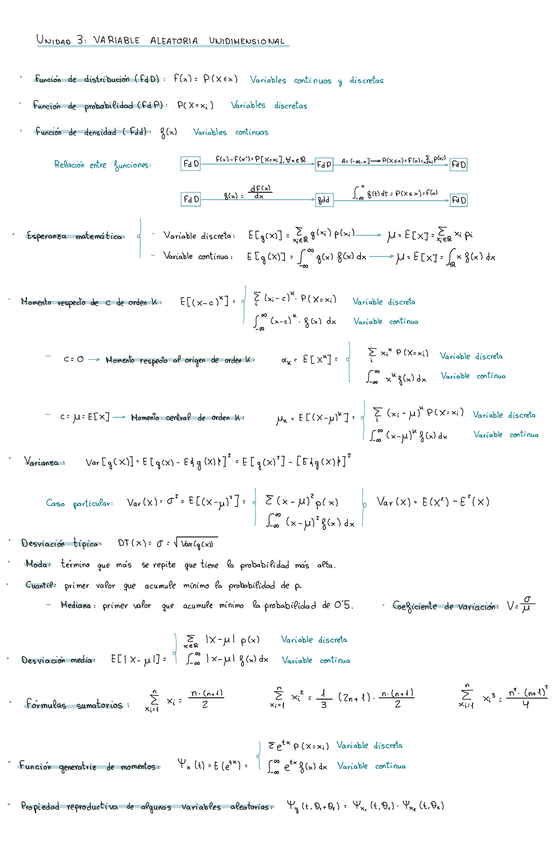 UNIDAD 3: VARIABLE ALEATORIA UNIDIMENSIONAL
· Función de distribución (FdD): F(x) = P(X≤x) Variables continuas y discretas
· Función de probabilidad (FdP): P(X=xi) Variables discretas
· Función de densidad (Fdd): f(x) Variables continuas
Relación entre funciones: FdD F(x)-F(x⁻)=P[X=xi],∀xi∈ℝ FdP A=(-∞,x]→P(X≤x)=F(x)=∑ p(xi) FdD
FdD f(x) = dF(x)/dx fdd ∫_{-∞}^{x} f(t)dt = P(X≤x)=F(x) FdD
· Esperanza matemática: - Variable discreta: E[g(X)] = ∑_{xi∈ℝ} g(xi) p(xi) → μ = E[X] = ∑_{xi∈ℝ} xi pi
- Variable continua: E[g(X)] = ∫_{-∞}^{∞} g(x) f(x) dx → μ = E[X] = ∫_ℝ x f(x) dx
· Momento respecto de c de orden K: E[(X-c)^K] = { ∑_i (xi-c)^K · P(X=xi) Variable discreta
∫_{-∞}^{∞} (x-c)^K · f(x) dx Variable continua
- c=0 → Momento respecto al origen de orden K: α_K = E[X^K] = { ∑_i xi^K P(X=xi) Variable discreta
∫_{-∞}^{∞} x^K f(x) dx Variable continua
- c=μ=E[X] → Momento central de orden K: μ_K = E[(X-μ)^K] = { ∑_i (xi-μ)^K P(X=xi) Variable discreta
∫_{-∞}^{∞} (x-μ)^K f(x) dx Variable continua
· Varianza: Var[g(X)] = E[g(X) - E{g(X)}]² = E[g(X)²] - [E{g(X)}]²
Caso particular: Var(X) = σ² = E[(X-μ)²] = { ∑ (x-μ)² p(x) } Var(X) = E(X²) - E²(X)
∫_{-∞}^{∞} (x-μ)² f(x) dx
· Desviación típica: DT(X) = σ = √Var(g(x))
· Moda: término que más se repite que tiene la probabilidad más alta.
· Cuantil: primer valor que acumule mínimo la probabilidad de p.
- Mediana: primer valor que acumule mínimo la probabilidad de 0'5. · Coeficiente de variación: V = σ/μ
· Desviación media: E[|X-μ|] = { ∑_{x∈ℝ} |X-μ| p(x) Variable discreta
∫_{-∞}^{∞} |X-μ| f(x) dx Variable continua
· Fórmulas sumatorios: ∑_{xi=1}^{n} xi = n·(n+1)/2 ∑_{xi=1}^{n} xi² = 1/3 (2n+1) · n·(n+1)/2 ∑_{xi=1}^{n} xi³ = n²·(n+1)²/4
· Función generatriz de momentos: Ψ_x (t) = E(e^{tx}) = { ∑ e^{tx} P(X=xi) Variable discreta
∫_{-∞}^{∞} e^{tx} f(x) dx Variable continua
· Propiedad reproductiva de algunas variables aleatorias: Ψ_y (t,θ₁+θ₂) = Ψ_{x₁} (t,θ₁) · Ψ_{x₂} (t,θ₂)